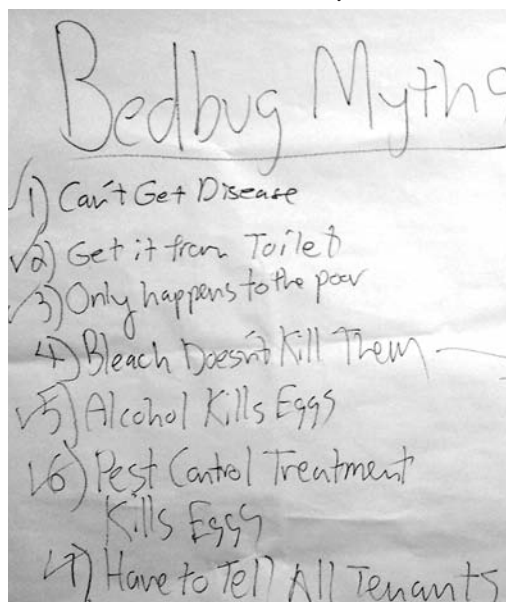 Bedbug Myths
1) Can't Get Disease
2) Get it from Toilet
3) Only happens to the poor
4) Bleach Doesn't Kill Them
5) Alcohol Kills Eggs
6) Pest Control Treatment
Kills Eggs
7) Have to Tell All Tenants